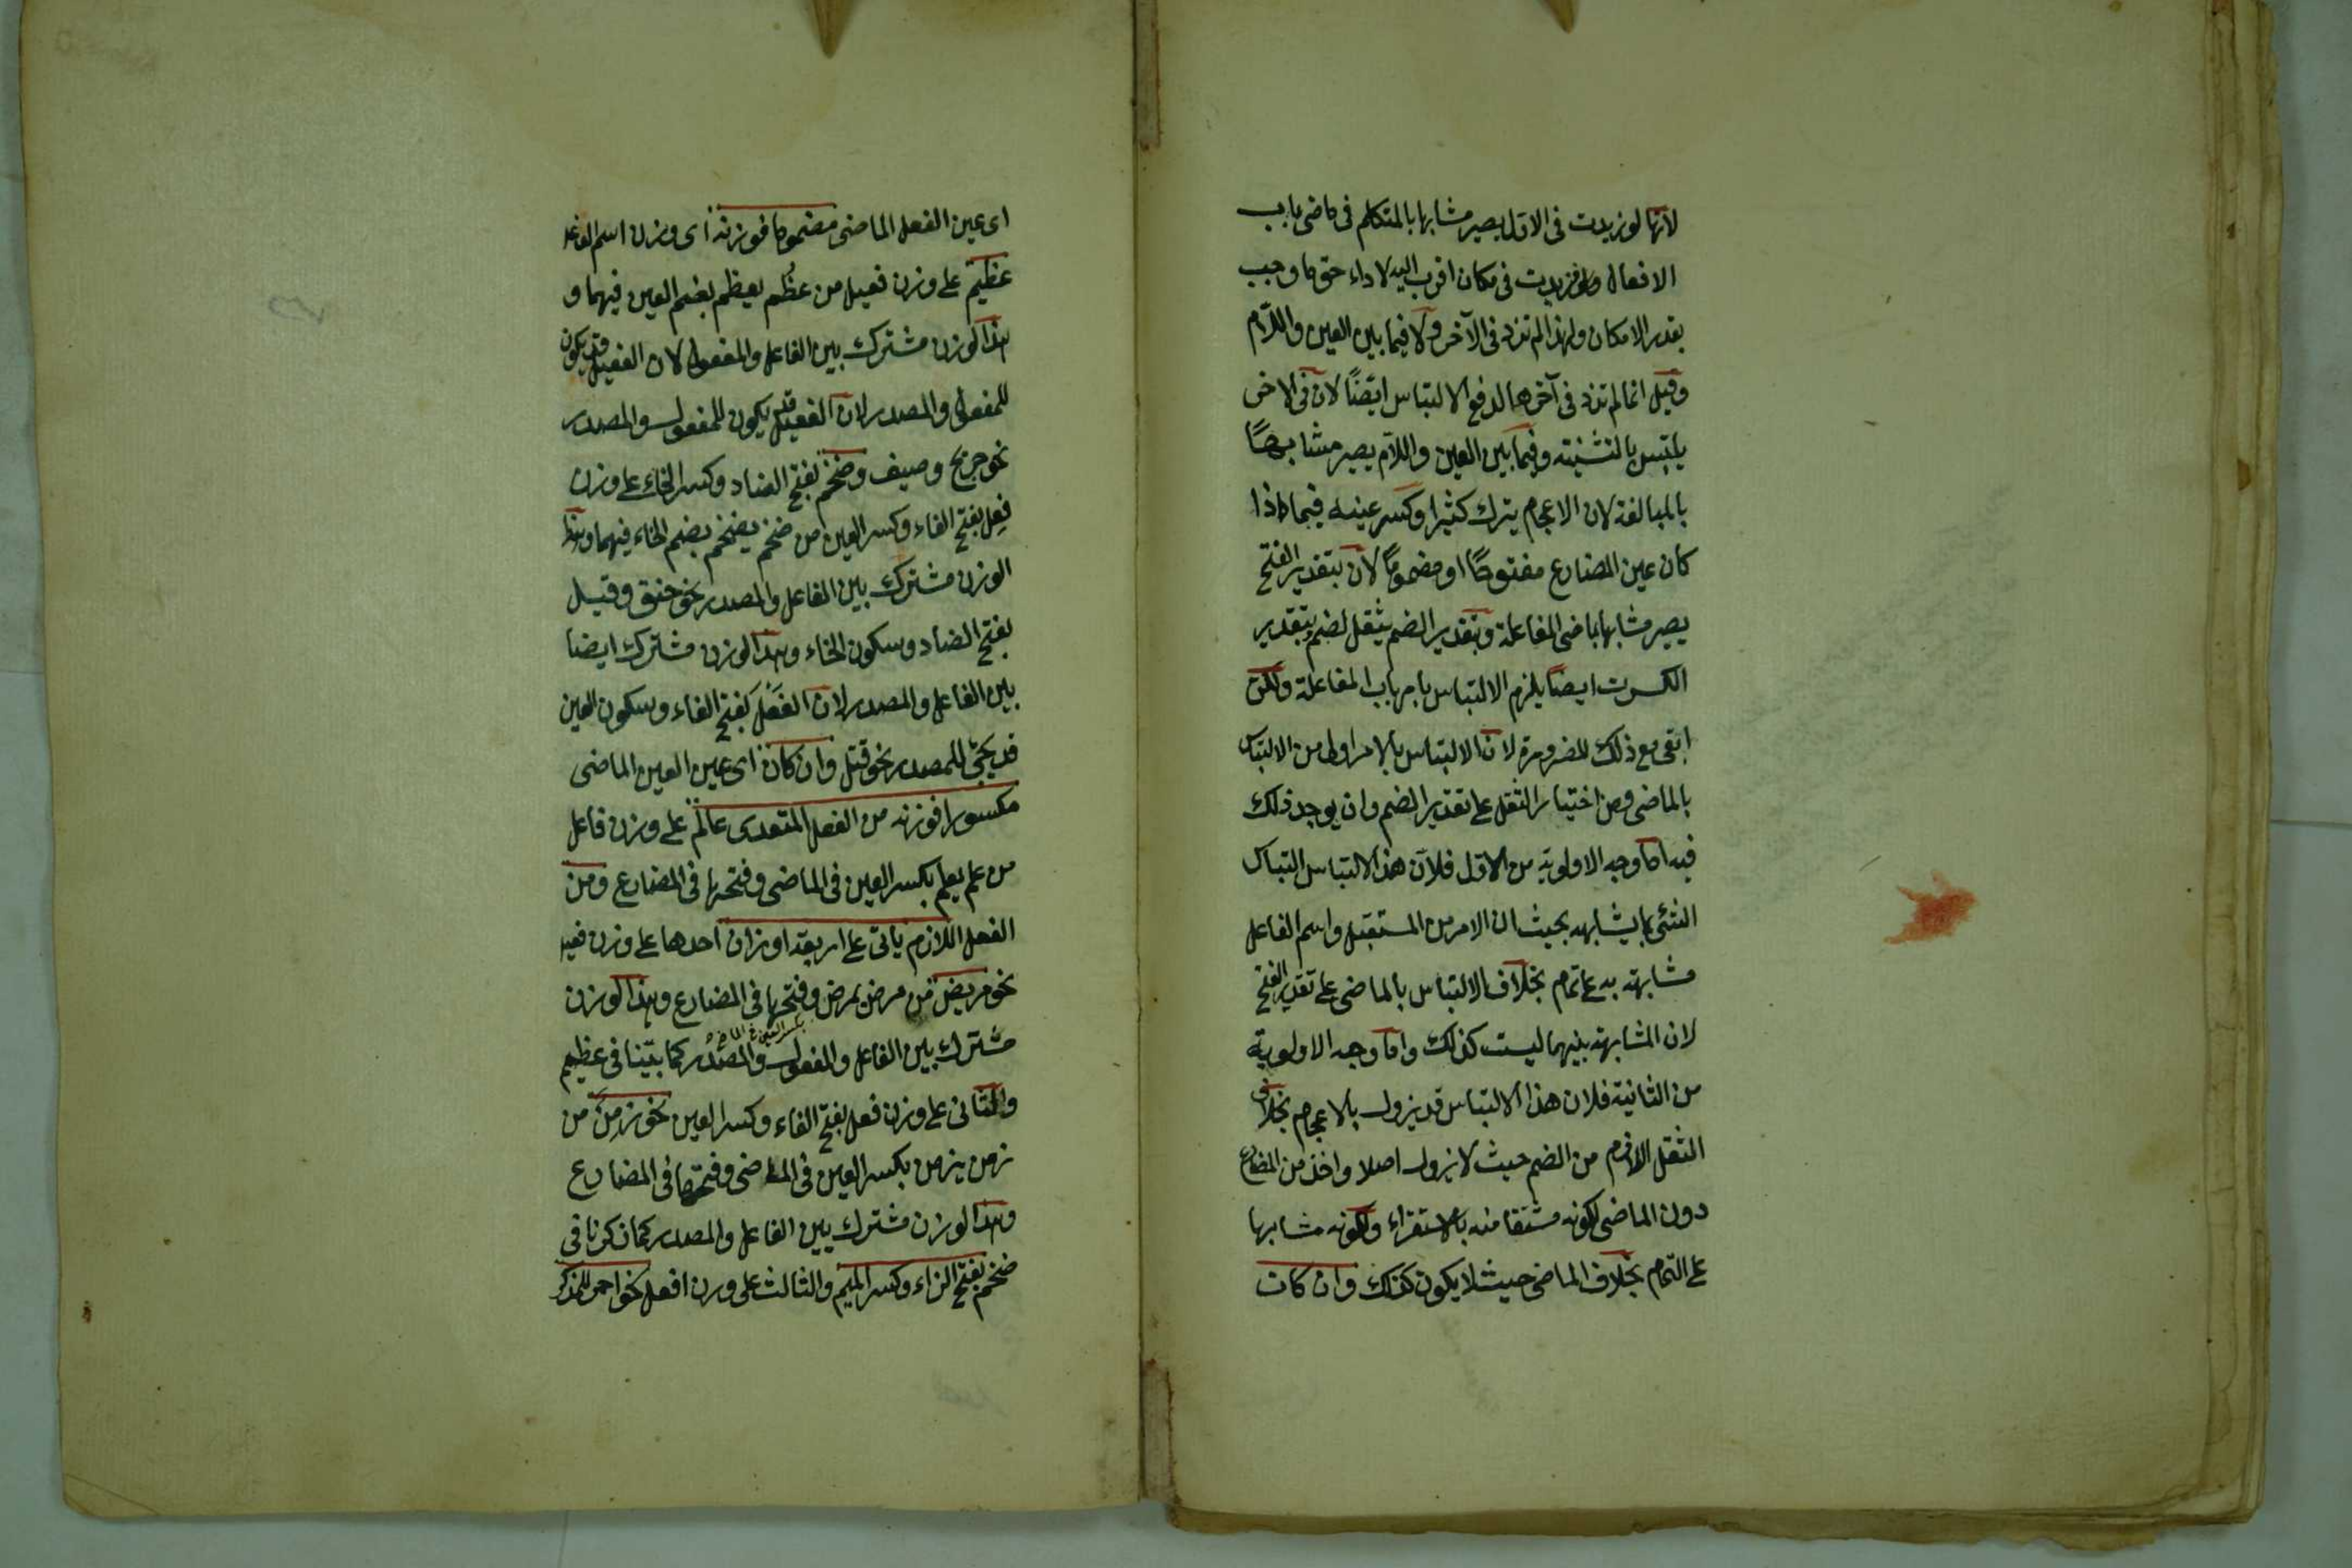 لانها لو زيدت في الاول يصير مشابها بالمتكلم في ماضي باب
الافعال ولو زيدت في مكان اقرب اليه لاداء حق ما وجب
بقدر الامكان ولهذا لم تزد في الآخر ولا فيما بين العين واللام
وقيل انما لم تزد في آخرها لدفع الالتباس ايضًا لان في الاخر
يلتبس بالتثنية وفيما بين العين واللام يصير مشابهًا
بالمبالغة لان الاعجام يترك كثيرا وكسر عينه فيما اذا
كان عين المضارع مفتوحًا او مضمومًا لان بتقدير الفتح
يصير مشابها بماضى المفاعلة وبتقدير الضم يثقل لضم وبتقدير
الكسرت ايضا يلزم الالتباس بامر باب المفاعلة ولكن
ابقى مع ذلك للضرورة لان الالتباس بالامر اولى من الالتباس
بالماضى ومن اختيار الثقل على تقدير الضم وان يوجد ذلك
فيه اما وجه الاولوية من الاول فلان هذا الالتباس التباس
الشئ بما يشابهه بحيث ان الامر من المستقبل واسم الفاعل
مشابهة به على تمام بخلاف الالتباس بالماضى على تقدير الفتح
لان المشابهة بينهما ليست كذلك واما وجه الاولوية
من الثانية فلان هذا الالتباس قد يزول بالاعجام بخلاف
الثقل اللازم من الضم حيث لا يزول اصلا واخذ من المضارع
دون الماضى لكونه مشتقا منه بالاستقراء ولكونه مشابها
على التمام بخلاف الماضى حيث لا يكون كذلك وان كان
اى عين الفعل الماضى مضموما فوزنه اى وزن اسم الفاعل
عظيم على وزن فعيل من عظم يعظم بضم العين فيهما و
هذا الوزن مشترك بين الفاعل والمفعول لان الفعيل قد يكون
للمفعول والمصدر لان الفعيل قد يكون للمفعول والمصدر
نحو جريح وصيف وضخم بفتح الضاد وكسر الخاء على وزن
فعل بفتح الفاء وكسر العين من ضخم يضخم بضم الخاء فيهما وهذا
الوزن مشترك بين الفاعل والمصدر نحو خنق وقيل
بفتح الضاد وسكون الخاء وهذا الوزن مشترك ايضا
بين الفاعل والمصدر لان الفعل بفتح الفاء وسكون العين
قد يجئ للمصدر نحو قتل وان كان اى عين العين الماضى
مكسورا فوزنه من الفعل المتعدى عالم على وزن فاعل
من علم يعلم بكسر العين في الماضى وفتحها في المضارع ومن
الفعل اللازم ياتى على اربعة اوزان احدها على وزن فعيل
نحو مريض من مرض يمرض وفتحها في المضارع وهذا الوزن
بكسر العين في الماضى
مشترك بين الفاعل والمفعول والمصدر كما بيّنا في عظيم
والثانى على وزن فعل بفتح الفاء وكسر العين نحو زمن من
زمن يزمن بكسر العين في الماضى وفتحها في المضارع
وهذا الوزن مشترك بين الفاعل والمصدر كما ذكرنا في
ضخم بفتح الزاء وكسر الميم والثالث على وزن افعل نحو احمر للمذكر